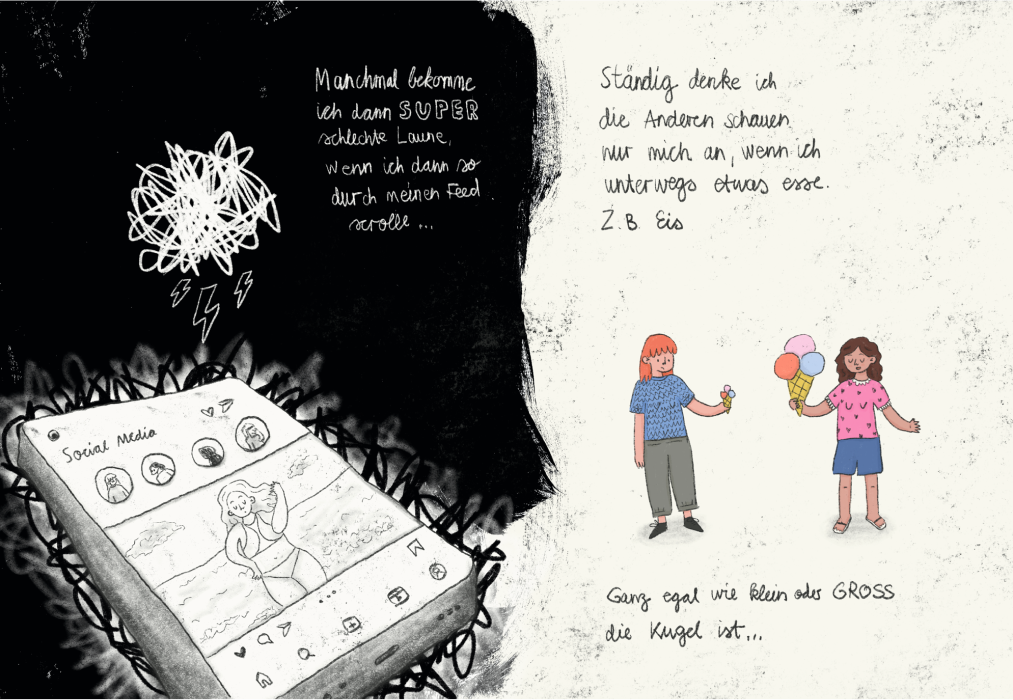 Manchmal bekomme
ich dann SUPER
schlechte Laune,
wenn ich dann so
durch meinen Feed
scrolle...
Social Media
Ständig denke ich
die Anderen schauen
nur mich an, wenn ich
unterwegs etwas esse.
Z.B. Eis
Ganz egal wie klein oder GROSS
die Kugel ist...